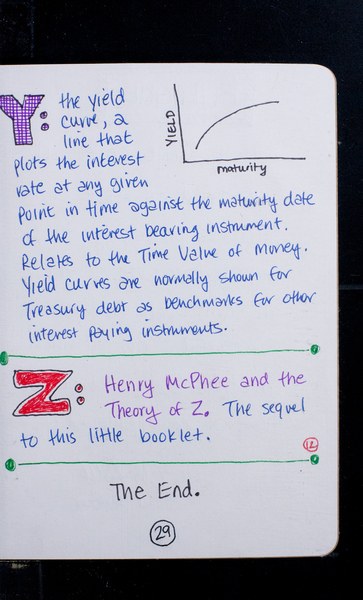 Y: the yield
curve, a
line that
plots the interest
rate at any given
YIELD
maturity
point in time against the maturity date
of the interest bearing instrument.
Relates to the Time Value of Money.
Yield curves are normally shown for
Treasury debt as benchmarks for other
interest paying instruments.
Z: Henry McPhee and the
Theory of Z. The sequel
to this little booklet.
12
The End.
29